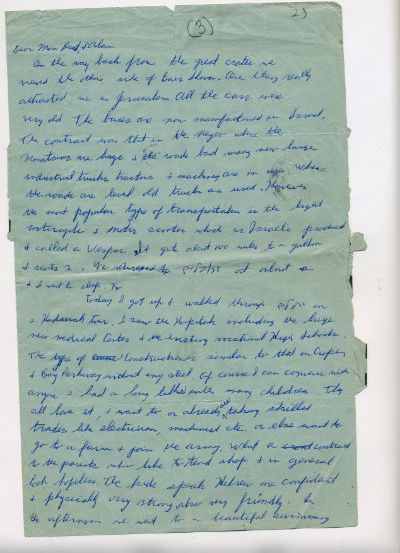 23
(3)
Dear Mom Dad & Alan
On the way back from the great crater we
viewed the other side of Beer Sheva. One thing really
attracted me in Jerusalem All the cars were
very old The buses are now manufactured in Israel.
The contrast was that in the Negev where the
mountains are huge & the roads bad many new large
industrial trucks tractors & machinery are in use Where
the roads are level old trucks are used. However
the most popular type of transportation is the light
motorcycle & motor scooter which is Israeli produced
& called a Vespa. It gets about 100 miles to a gallon
& seats 2. We returned to at about
& I went to sleep.
Today I got up & walked through on
a Hadassah tour. I saw the Hospitals including the huge
new medical Center & the existing vocational High Schools.
The type of construction is similar to that on
& Bay Parkway without any steel Of course I can converse with
anyone & had a long talk with many children They
all love it & want to or already are taking skilled
trades like electrician, machinist etc. or else want to
go to a farm & join the army. What a contrast
to the parents who like to tend shop & in general
look hopeless. The kids speak Hebrew are confident
& physically very strong also very friendly. In
the afternoon we went to a beautiful swimming